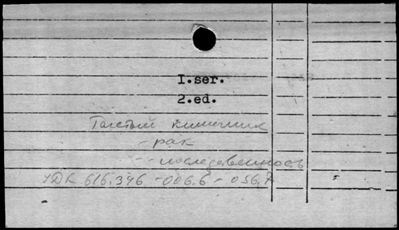 I.ser.
2.ed.
Толстый кишечник
- рак
- - последовенность
УДК 616.346 - 006.6 - 056.7